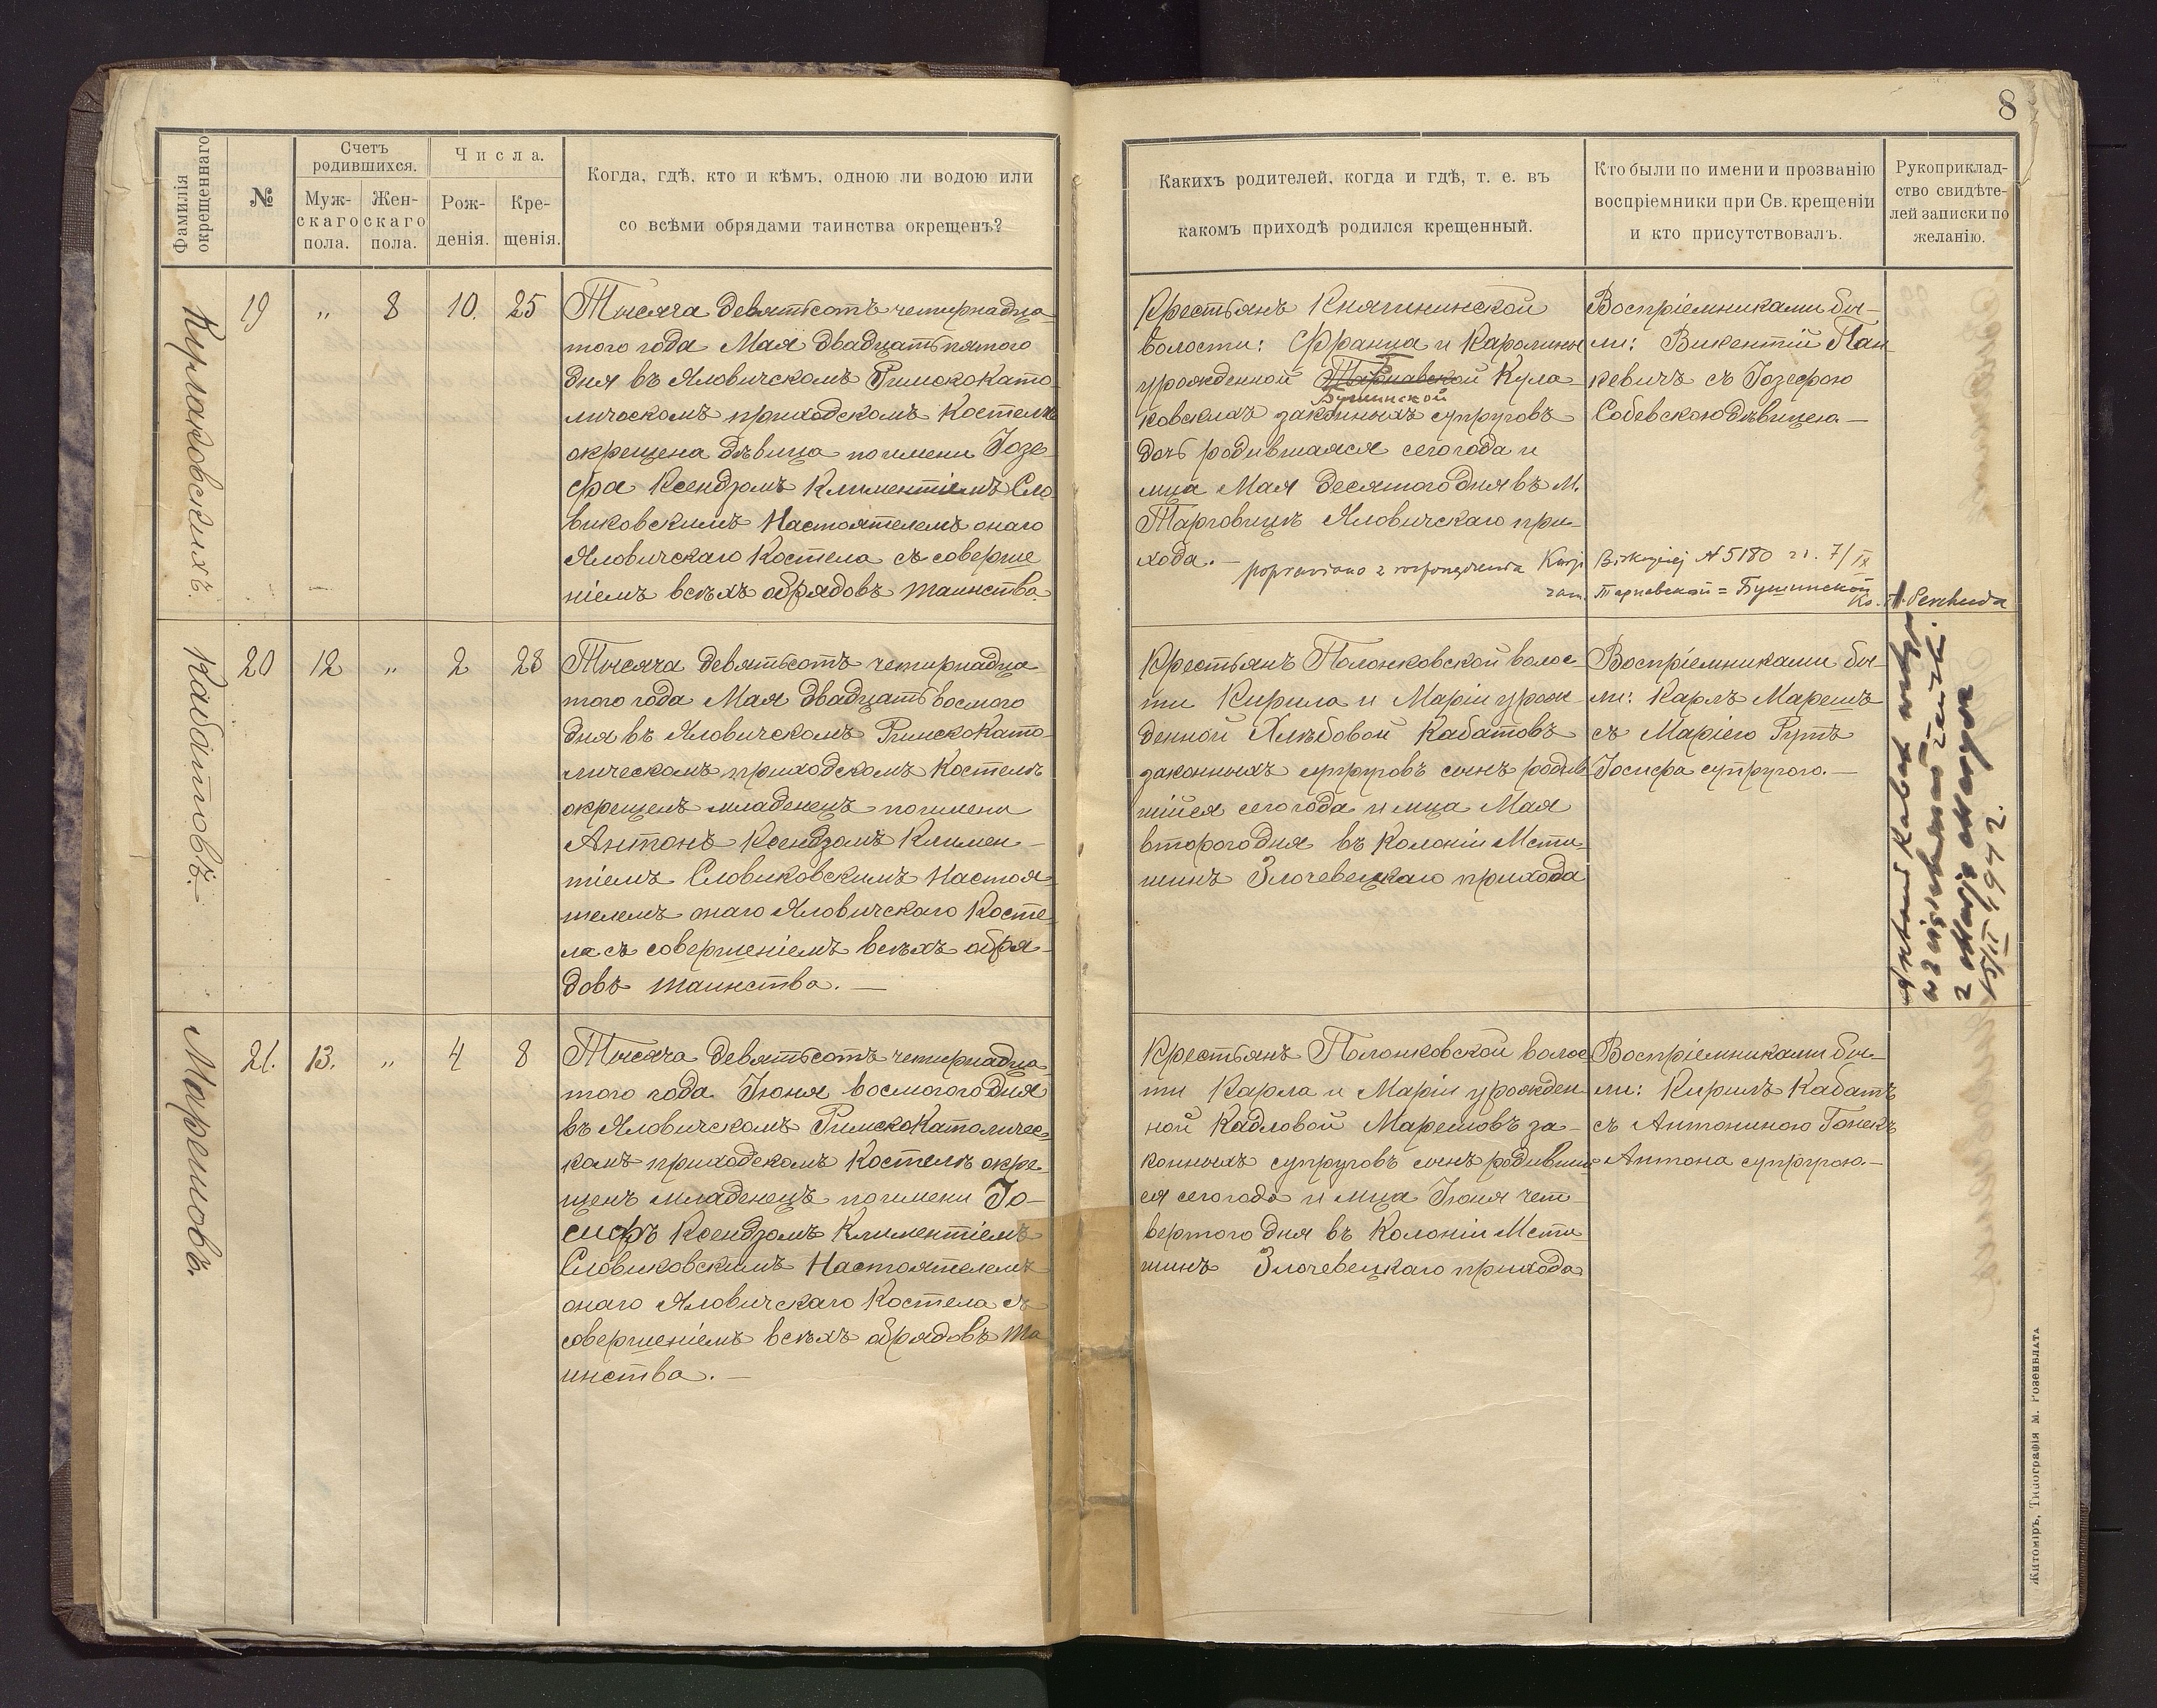 8
Фамилія окрещеннаго
№
Счетъ родившихся.
Муж-
скаго
пола.
Жен-
скаго
пола.
Числа.
Рож-
денія.
Кре-
щенія.
Когда, гдѣ, кто и кѣмъ, одною ли водою или
со всѣми обрядами таинства окрещенъ?
Какихъ родителей, когда и гдѣ, т. е. въ
какомъ приходѣ родился крещенный.
Кто были по имени и прозванію
воспріемники при Св. крещеніи
и кто присутствовалъ.
Рукоприклад-
ство свидѣте-
лей записки по
желанію.
19 „ 8 10. 25
Тысяча девятьсотъ четырнадца-
того года Мая двадцать пятого
дня въ Яловичскомъ Римскокато-
лическомъ приходскомъ Костелѣ
окрещена дѣвица по имени Іозе-
фа Ксендзомъ Климентіемъ Сло-
виковскимъ Настоятелемъ онаго
Яловичскаго Костела съ соверше
ніемъ всѣхъ обрядовъ таинства.
Крестьянъ Княгининской
волости: Франца и Каролины
урожденной Тарнавской Кула-
Бушинской
ковскихъ законныхъ супруговъ
дочь родившаяся сего года и
мца Мая десятого дня въ М.
Тарговицѣ Яловичскаго при-
хода. —
Воспріемниками бы-
ли: Викентій Пан
кевичъ съ Іозефою
Собевскою дѣвицею. —
Kurji Biskupiej N 5180 7/IX
zam. Тарнавской = Бушинской
20 12 „ 2 28
Кабатовъ.
Тысяча девятьсотъ четырнадца-
того года Мая двадцать восмого
дня въ Яловичскомъ Римскокато-
лическомъ приходскомъ Костелѣ
окрещенъ младенецъ по имени
Антонъ Ксендзомъ Климен-
тіемъ Словиковскимъ Настоя-
телемъ онаго Яловичскаго Косте
ла съ совершеніемъ всѣхъ обря-
довъ таинства. —
Крестьянъ Полонковской волос-
ти Кирила и Маріи урож-
денной Хлѣбовой Кабатовъ
законныхъ супруговъ сынъ родив
шійся сего года и мца Мая
второго дня въ Колоніи Мсти
шинъ Злочевецкаго прихода
Воспріемниками бы-
ли: Карлъ Марешъ
съ Маріею Рутъ
Іосифа супругою. —
15/II 1942.
21. 13. „ 4 8
Марешовъ.
Тысяча девятьсотъ четырнадца-
того года Іюня восмогого дня
въ Яловичскомъ Римскокатоличес-
комъ приходскомъ Костелѣ окре-
щенъ младенецъ по имени Іо-
сифъ Ксендзомъ Климентіемъ
Словиковскимъ Настоятелемъ
онаго Яловичскаго Костела съ
совершеніемъ всѣхъ обрядовъ та
инства. —
Крестьянъ Полонковской волос-
ти Карла и Маріи урожден
ной Кадловой Марешовъ за-
конныхъ супруговъ сынъ родивший
ся сего года и мца Іюня чет
вертого дня въ Колоніи Мсти
шинъ Злочевецкаго прихода
Воспріемниками бы-
ли: Кирилъ Кабатъ
съ Антониною Гонекъ
Антона супругою. —
Житоміръ, Типографія М. Розенблата